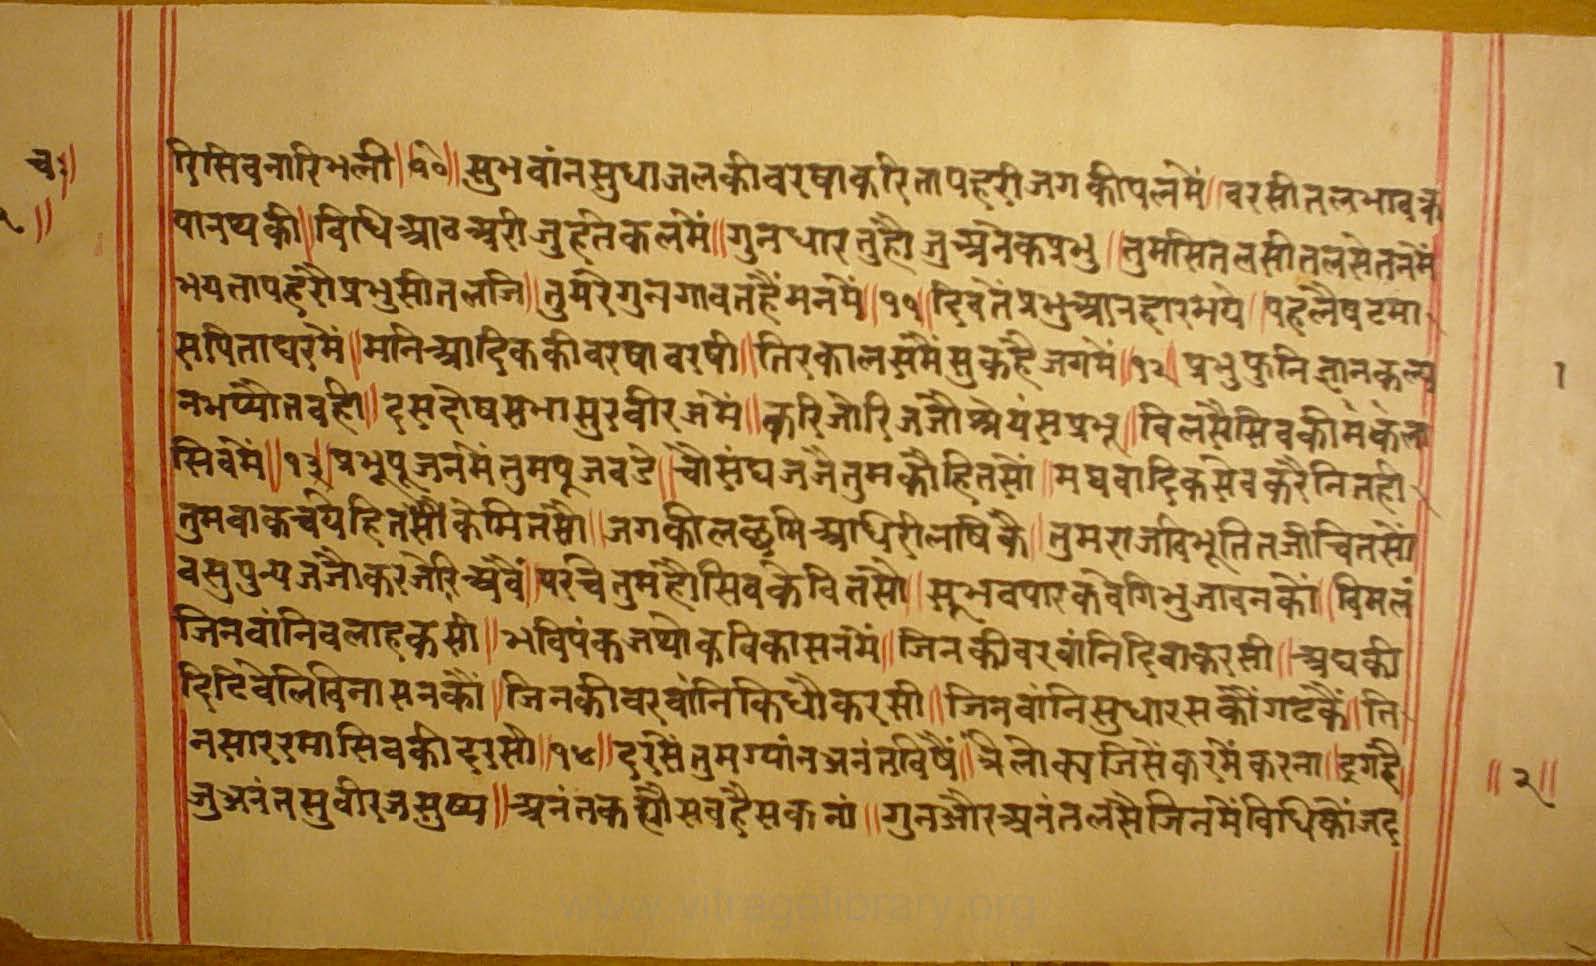 चः॥
रिसिवनारिभली॥१०॥सुभवांनसुधाजलकीवरषाकरितापहरीजगकीपलमें॥वरसीतलभावक्र
२॥
पानथकी॥विधिआठअरीजुहतेकलमें॥गुनधारतुहौजुअनेकप्रभु॥तुमसितलसीतलसेतनमें
भयतापहरौप्रभुसीतलजि॥तुमरेगुनगावतहैंमनमें॥११॥दिवतेंप्रभुआनहारभये॥पहलैषटमा
सपिताघरमें॥मनिआदिककीवरषावरषी॥तिरकालसमैंसुकहैजगमें॥१२॥प्रभुफुनिज्ञानकल्प
नभय्यौतवही॥दसदोषसभासुरवीरजमें॥करिजोरिजजौंश्रेयंसप्रभू॥विलसैसिवकीमकला
सिवमें॥१३॥प्रभूपूजनमेंतुमपूजवडे॥चौसंघजजैतुमकौहितसों॥मघवादिकसेवकरैनितही
तुमवाकचयेहितसौंकेमितसौ॥जगकीलछमिआथिरीलषिकै॥तुमराजविभूतितजीचितसों
वसुपुन्यजजौकरजोरिअवै॥परचेतुमहौसिवकेवितसौ॥सूभवपारकवेगिभुजावनकों॥विमलं
जिनवांनिवलाहकसी॥भविपंकजथोकविकासनमें॥जिनकीवरवांनिदिवाकरसी॥अघकी
दिढिवेलिविनासनकौं॥जिनकीवरवांनिकिधौकरसी॥जिनवांनिसुधारसकौंगटकैं॥ति
नसाररमासिवकीदरसी॥१४॥दरसेतुमग्यांनअनंतविषैं॥त्रैलोक्यजिसेंकरमेंकरना॥द्रगहै
जुअनंतसुवीरजसुष्य॥अनंतकह्यौसवहैसकनां॥गुनऔरअनंतलसैजिनमेंविधिकोंजद
१
॥२॥
www.vitragelibrary.org